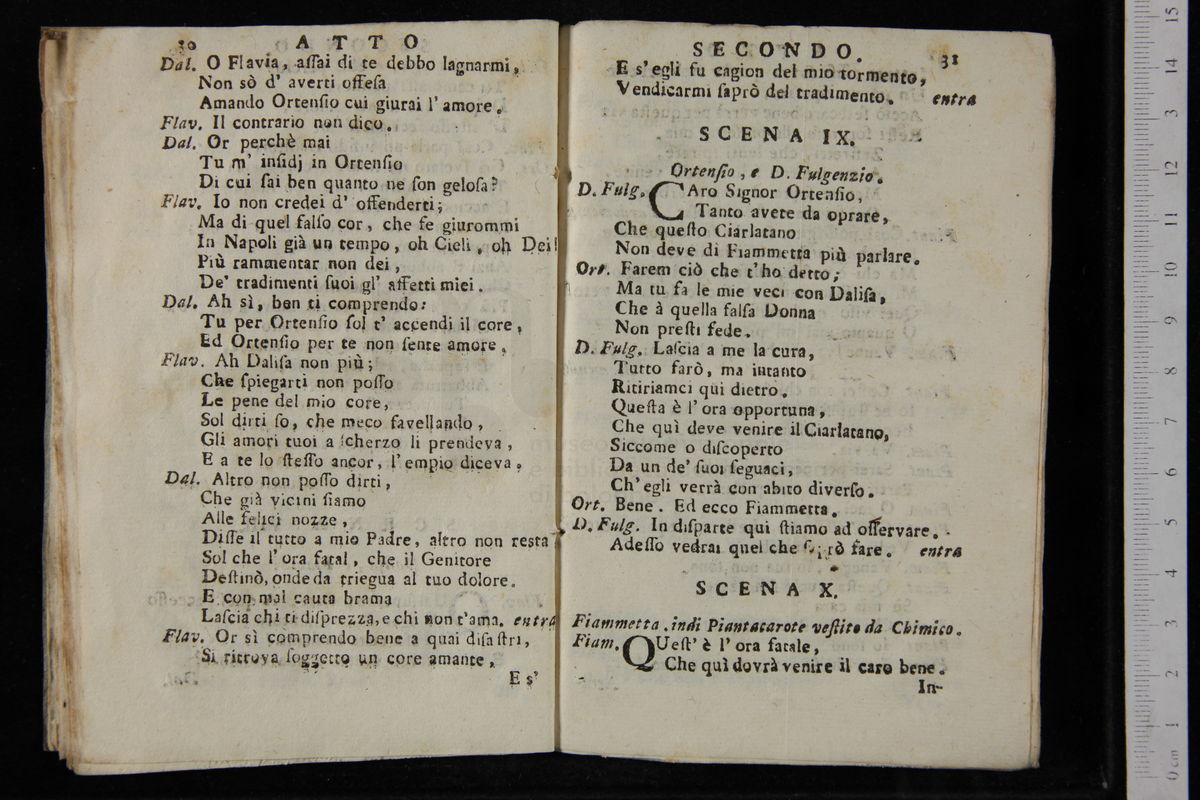 30 ATTO
Dal. O Flavia, aſſai di te debbo lagnarmi,
Non sò d' averti offeſa
Amando Ortenſio cui giurai l' amore.
Flav. Il contrario non dico.
Dal. Or perchè mai
Tu m' inſidj in Ortenſio
Di cui ſai ben quanto ne ſon geloſa?
Flav. Io non credei d' offenderti;
Ma di quel falſo cor, che fe giurommi
In Napoli già un tempo, oh Cieli, oh Dei!
Più rammentar non dei,
De' tradimenti ſuoi gl' affetti miei.
Dal. Ah sì, ben ti comprendo:
Tu per Ortenſio ſol t' accendi il core,
Ed Ortenſio per te non ſente amore.
Flav. Ah Daliſa non più;
Che ſpiegarti non poſſo
Le pene del mio core,
Sol dirti ſo, che meco favellando,
Gli amori tuoi a ſcherzo li prendeva,
E a te lo ſteſſo ancor, l' empio diceva.
Dal. Altro non poſſo dirti,
Che già vicini ſiamo
Alle felici nozze,
Diſſe il tutto a mio Padre, altro non reſta
Sol che l' ora fatal, che il Genitore
Deſtinò, onde da triegua al tuo dolore.
E con mal cauta brama
Laſcia chi ti diſprezza, e chi non t'ama. entra
Flav. Or sì comprendo bene a quai diſaſtri,
Si ritrova ſoggetto un core amante,
E s'
SECONDO. 31
E s' egli fu cagion del mio tormento,
Vendicarmi ſaprò del tradimento. entra
SCENA IX.
Ortenſio, e D. Fulgenzio.
D. Fulg. CAro Signor Ortenſio,
Tanto avete da oprare,
Che queſto Ciarlatano
Non deve di Fiammetta più parlare.
Ort. Farem ciò che t'ho detto;
Ma tu fa le mie veci con Daliſa,
Che à quella falſa Donna
Non preſti fede.
D. Fulg. Laſcia a me la cura,
Tutto farò, ma intanto
Ritiriamci qui dietro.
Queſta è l' ora opportuna,
Che quì deve venire il Ciarlatano,
Siccome o diſcoperto
Da un de' ſuoi ſeguaci,
Ch' egli verrà con abito diverſo.
Ort. Bene. Ed ecco Fiammetta.
D. Fulg. In diſparte qui ſtiamo ad oſſervare.
Adeſſo vedrai quel che fare. entra
SCENA X.
Fiammetta, indi Piantacarote veſtito da Chimico.
Fiam. QUeſt' è l' ora fatale,
Che quì dovrà venire il caro bene.
In-
0 cm 1 2 3 4 5 6 7 8 9 10 11 12 13 14 15